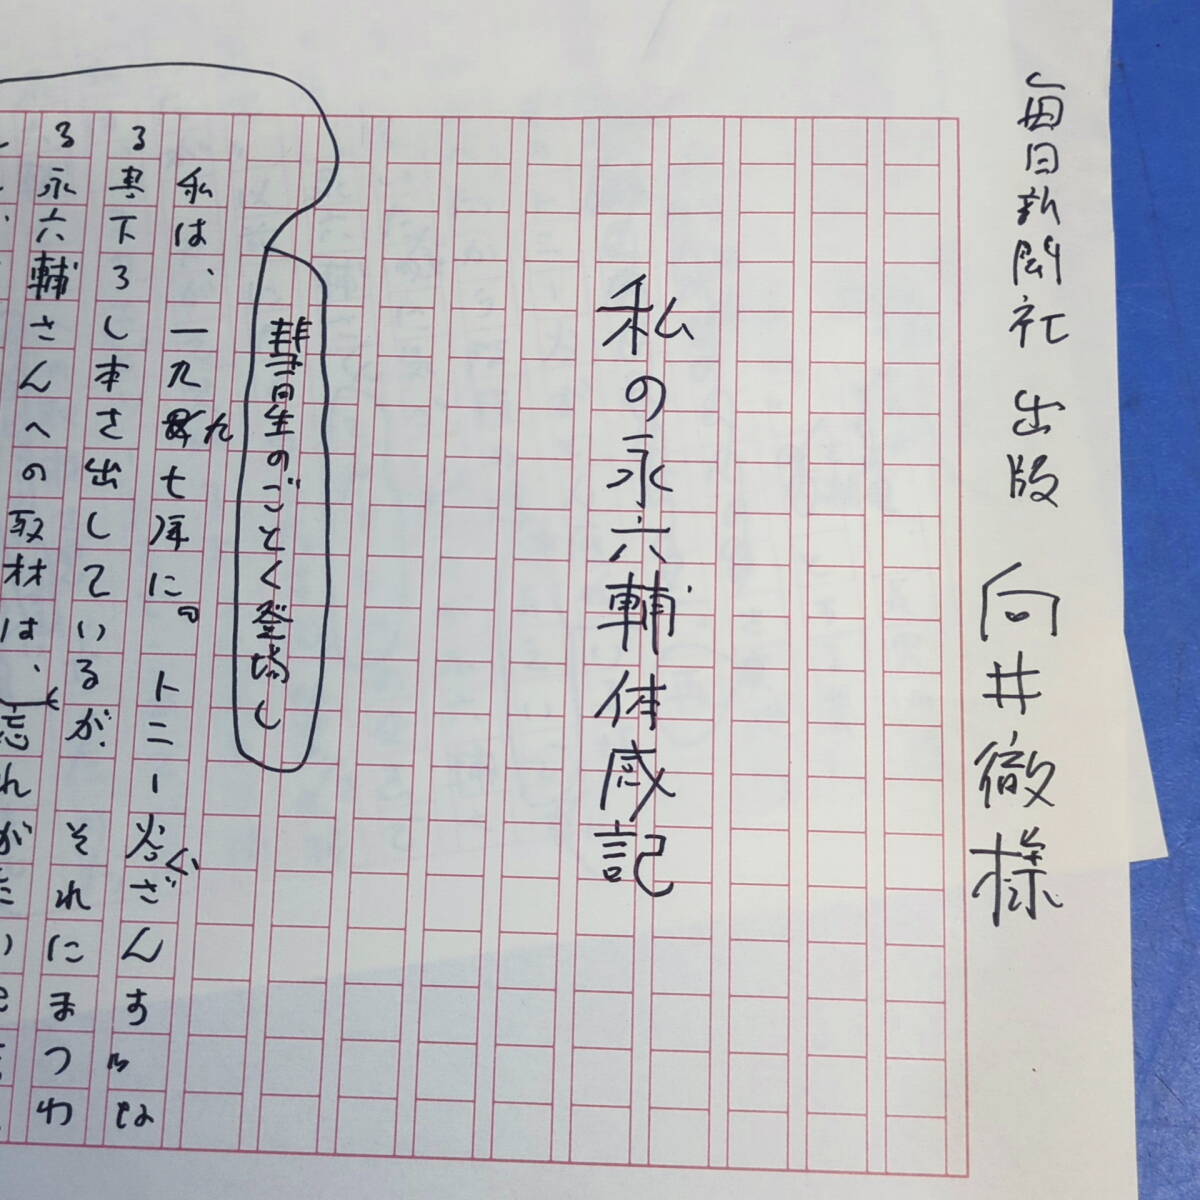 毎日新聞社 出版 向井徹様
私の永六輔体感記
彗星のごとく登場し
私は、一九九七年に『トニー谷、ざんす』な
る書下ろし本を出しているが、それにまつわ
る永六輔さんへの取材は、忘れがた